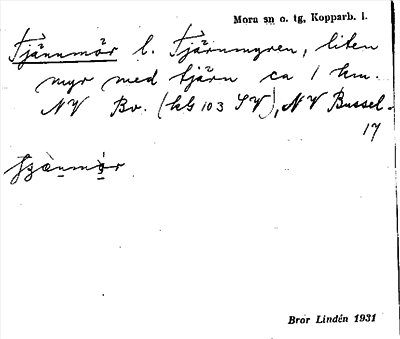 Mora sn o. tg, Kopparb. l.
Tjännmör l. Tjärnmyren, liten
myr med tjärn ca 1 km.
NV Bv. (kb 103 SV), NV Bussel-
17
Bror Lindén 1931